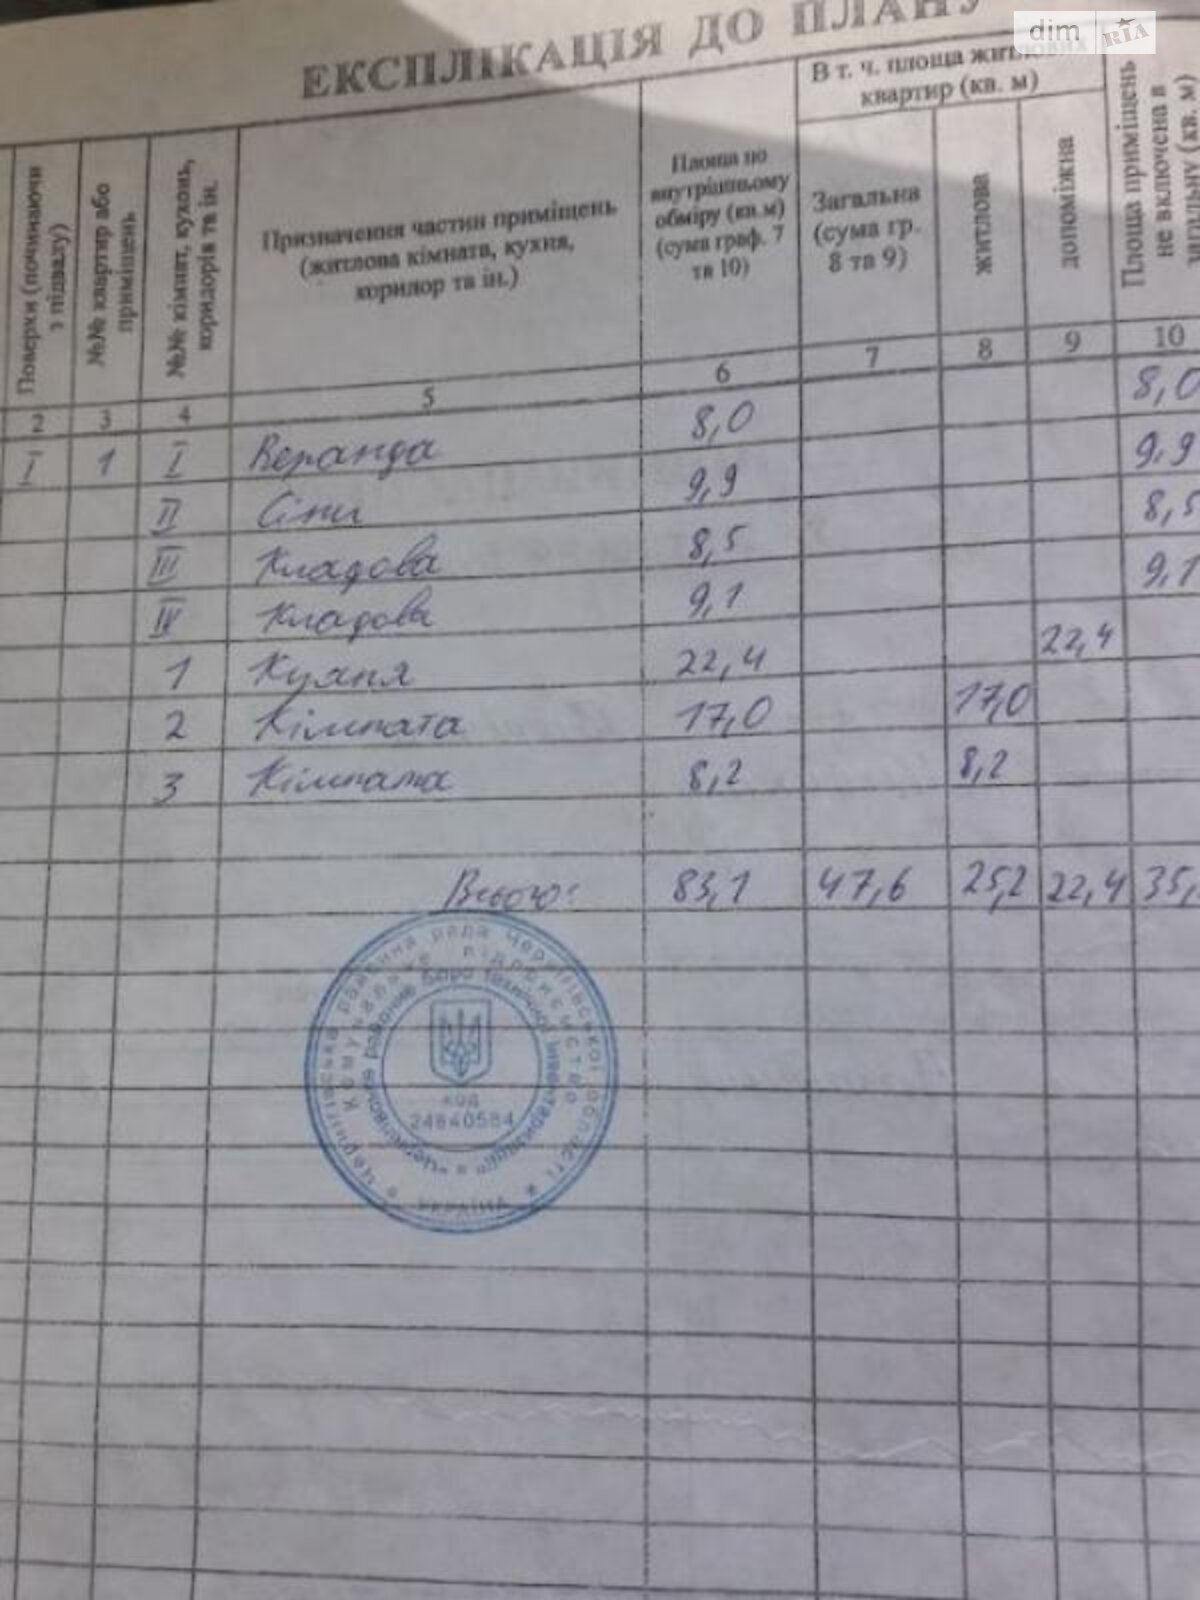 ЕКСПЛІКАЦІЯ ДО ПЛАНУ
dim RIA
Поверхи (починаючи з підвалу)
№№ квартир або приміщень
№№ кімнат, кухонь, коридорів та ін.
Призначення частин приміщень (житлова кімната, кухня, коридор та ін.)
Площа по внутрішньому обміру (кв.м) (сума граф. 7 та 10)
В т. ч. площа житлових квартир (кв. м)
Загальна (сума гр. 8 та 9)
житлова
допоміжна
Площа приміщень не включена в загальну (кв. м)
2 3 4 5 6 7 8 9 10
I 1 I Веранда 8,0 8,0
II Сіни 9,9 9,9
III Кладова 8,5 8,5
IV Кладова 9,1 9,1
1 Кухня 22,4 22,4
2 Кімната 17,0 17,0
3 Кімната 8,2 8,2
Всього: 83,1 47,6 25,2 22,4 35,
Чернігівська районна рада Чернігівської області
Комунальне підприємство
"Чернігівське районне бюро технічної інвентаризації"
код
24840584
УКРАЇНА